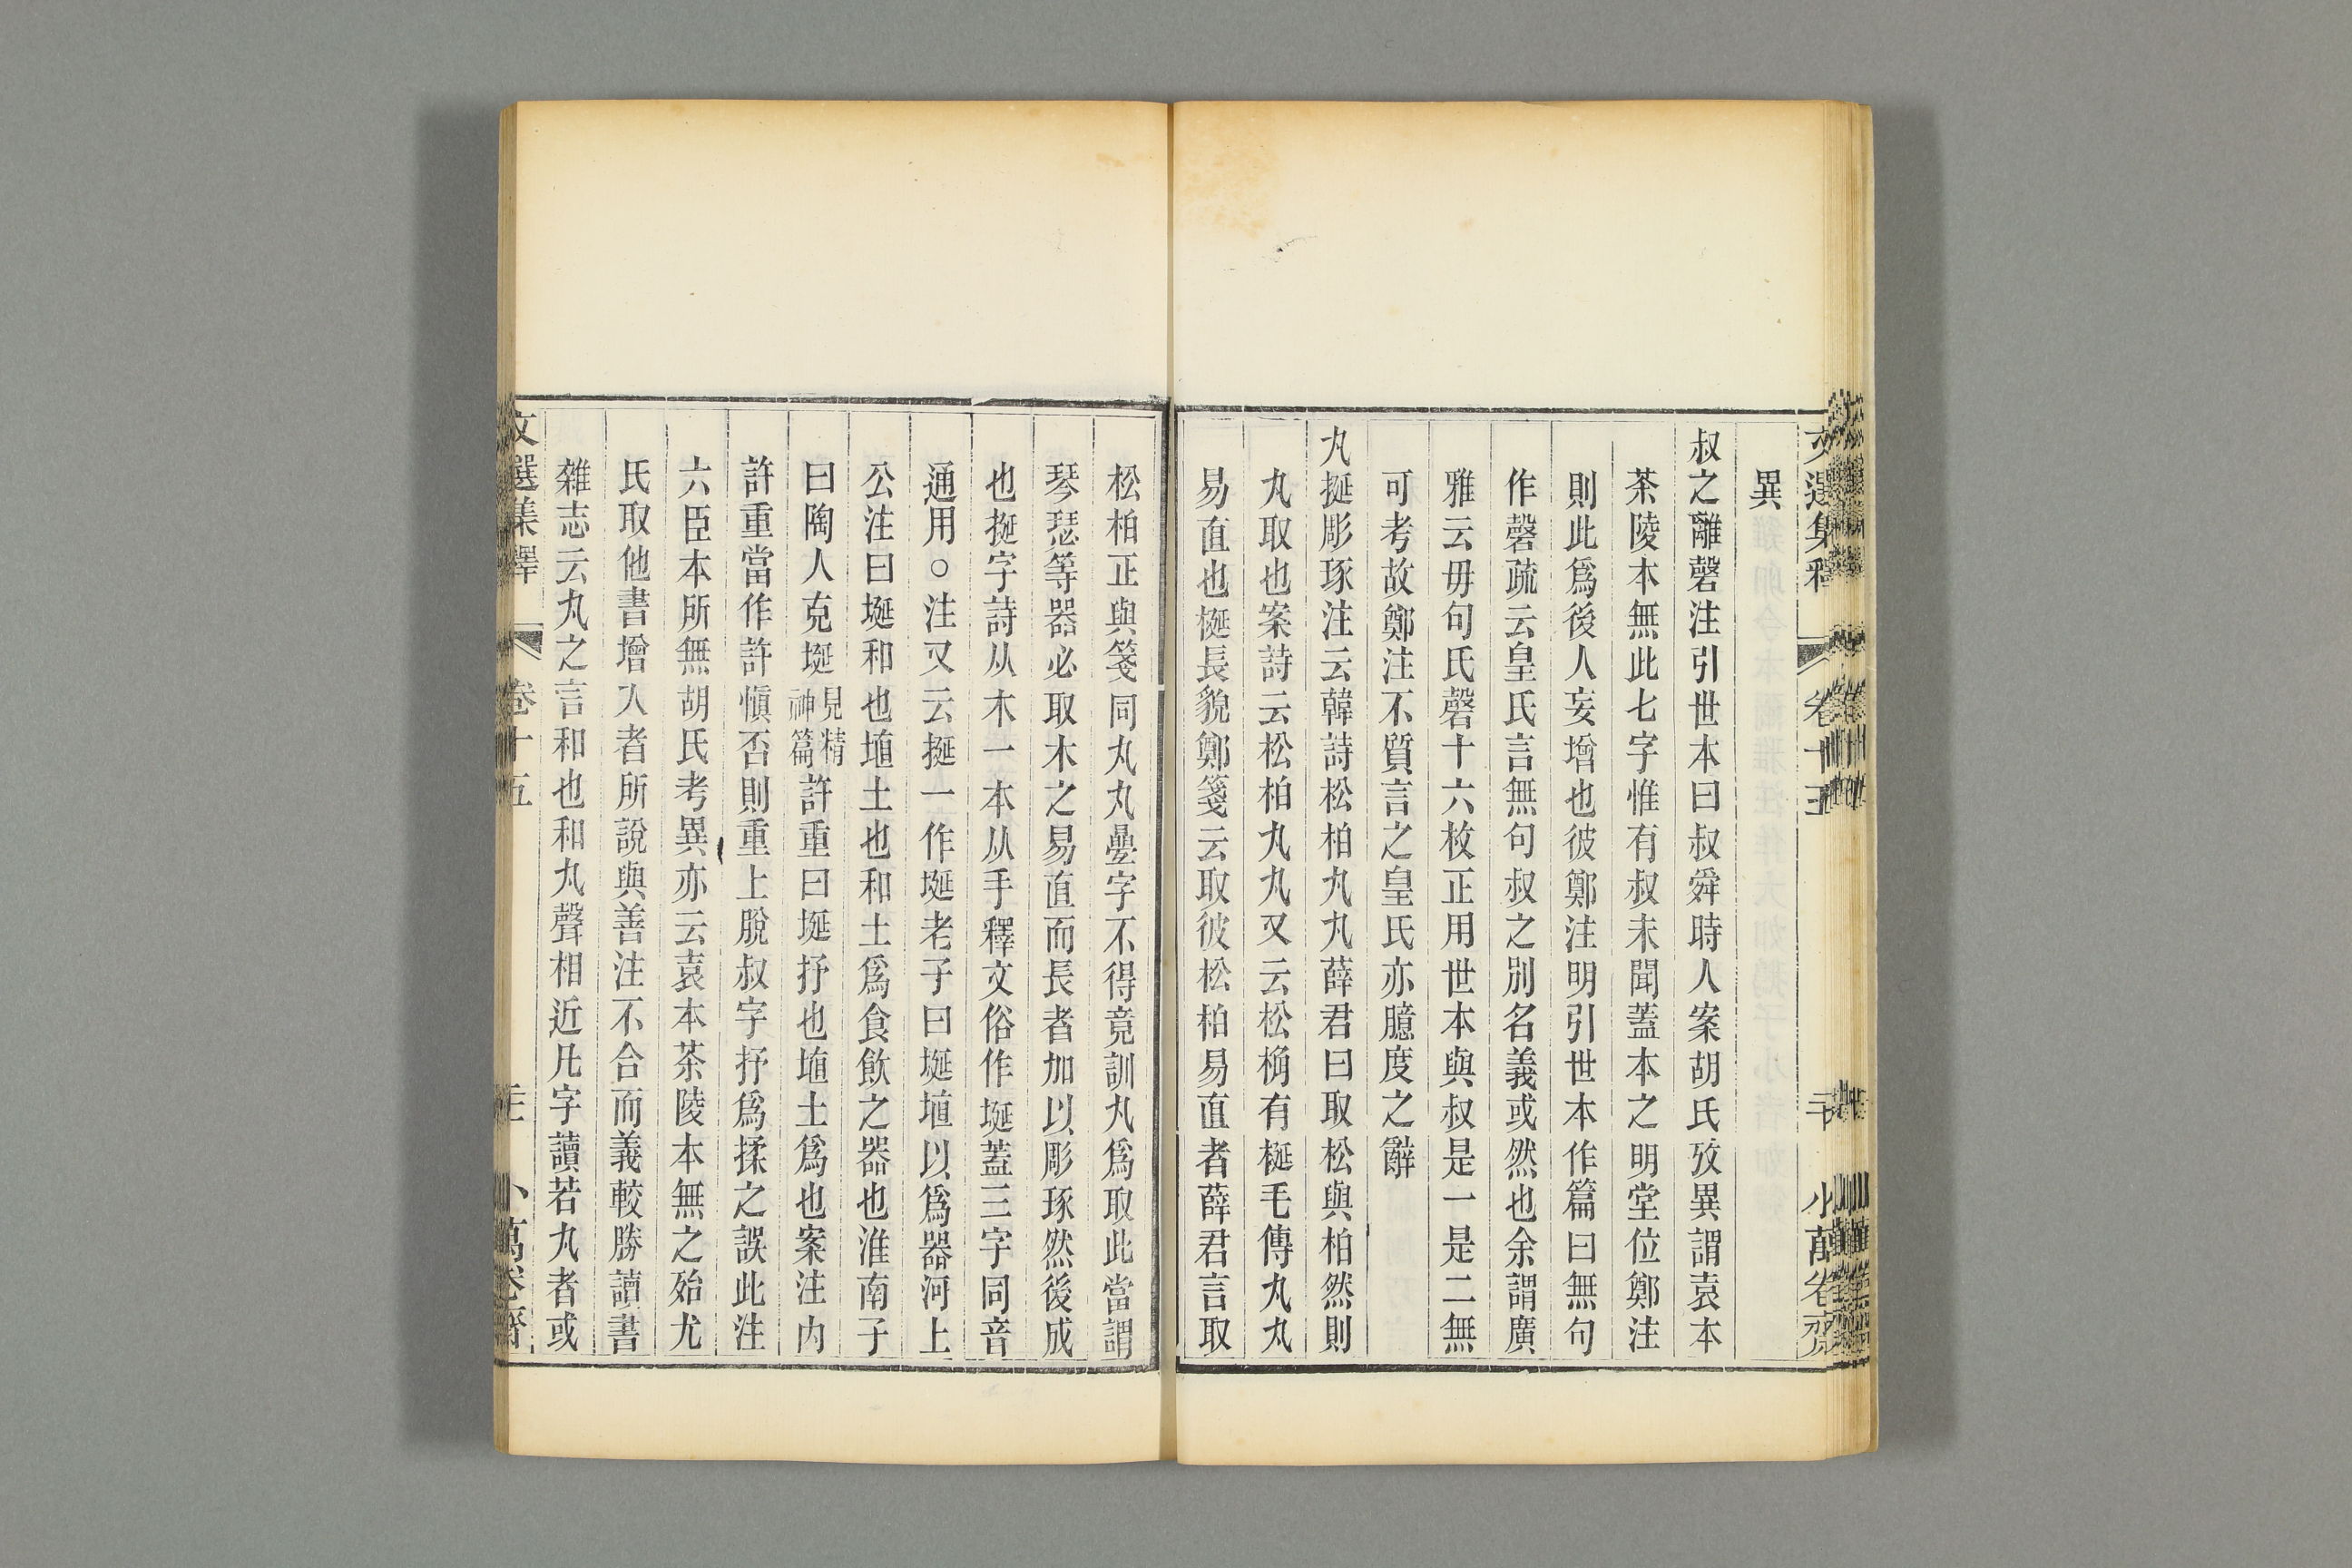 文選集釋 卷十五 二十 小萬卷齋
異
叔之離磬注引世本曰叔舜時人案胡氏攷異謂袁本
茶陵本無此七字惟有叔未聞蓋本之明堂位鄭注
則此爲後人妄增也彼鄭注明引世本作篇曰無句
作磬疏云皇氏言無句叔之別名義或然也余謂廣
雅云毋句氏磬十六枚正用世本與叔是一是二無
可考故鄭注不質言之皇氏亦臆度之辭
丸挻彫琢注云韓詩松柏丸丸薛君曰取松與柏然則
丸取也案詩云松柏丸丸又云松桷有梴毛傳丸丸
易直也梴長貌鄭箋云取彼松柏易直者薛君言取
松柏正與箋同丸丸疊字不得竟訓丸爲取此當謂
琴瑟等器必取木之易直而長者加以彫琢然後成
也挻字詩从木一本从手釋文俗作埏蓋三字同音
通用○注又云挻一作埏老子曰埏埴以爲器河上
公注曰埏和也埴土也和土爲食飲之器也淮南子
曰陶人克埏見精神篇許重曰埏抒也埴土爲也案注內
許重當作許愼否則重上脫叔字抒爲揉之誤此注
六臣本所無胡氏考異亦云袁本茶陵本無之殆尤
氏取他書增入者所說與善注不合而義較勝讀書
雜志云丸之言和也和丸聲相近凡字讀若丸者或
文選集釋 卷十五 小萬卷齋